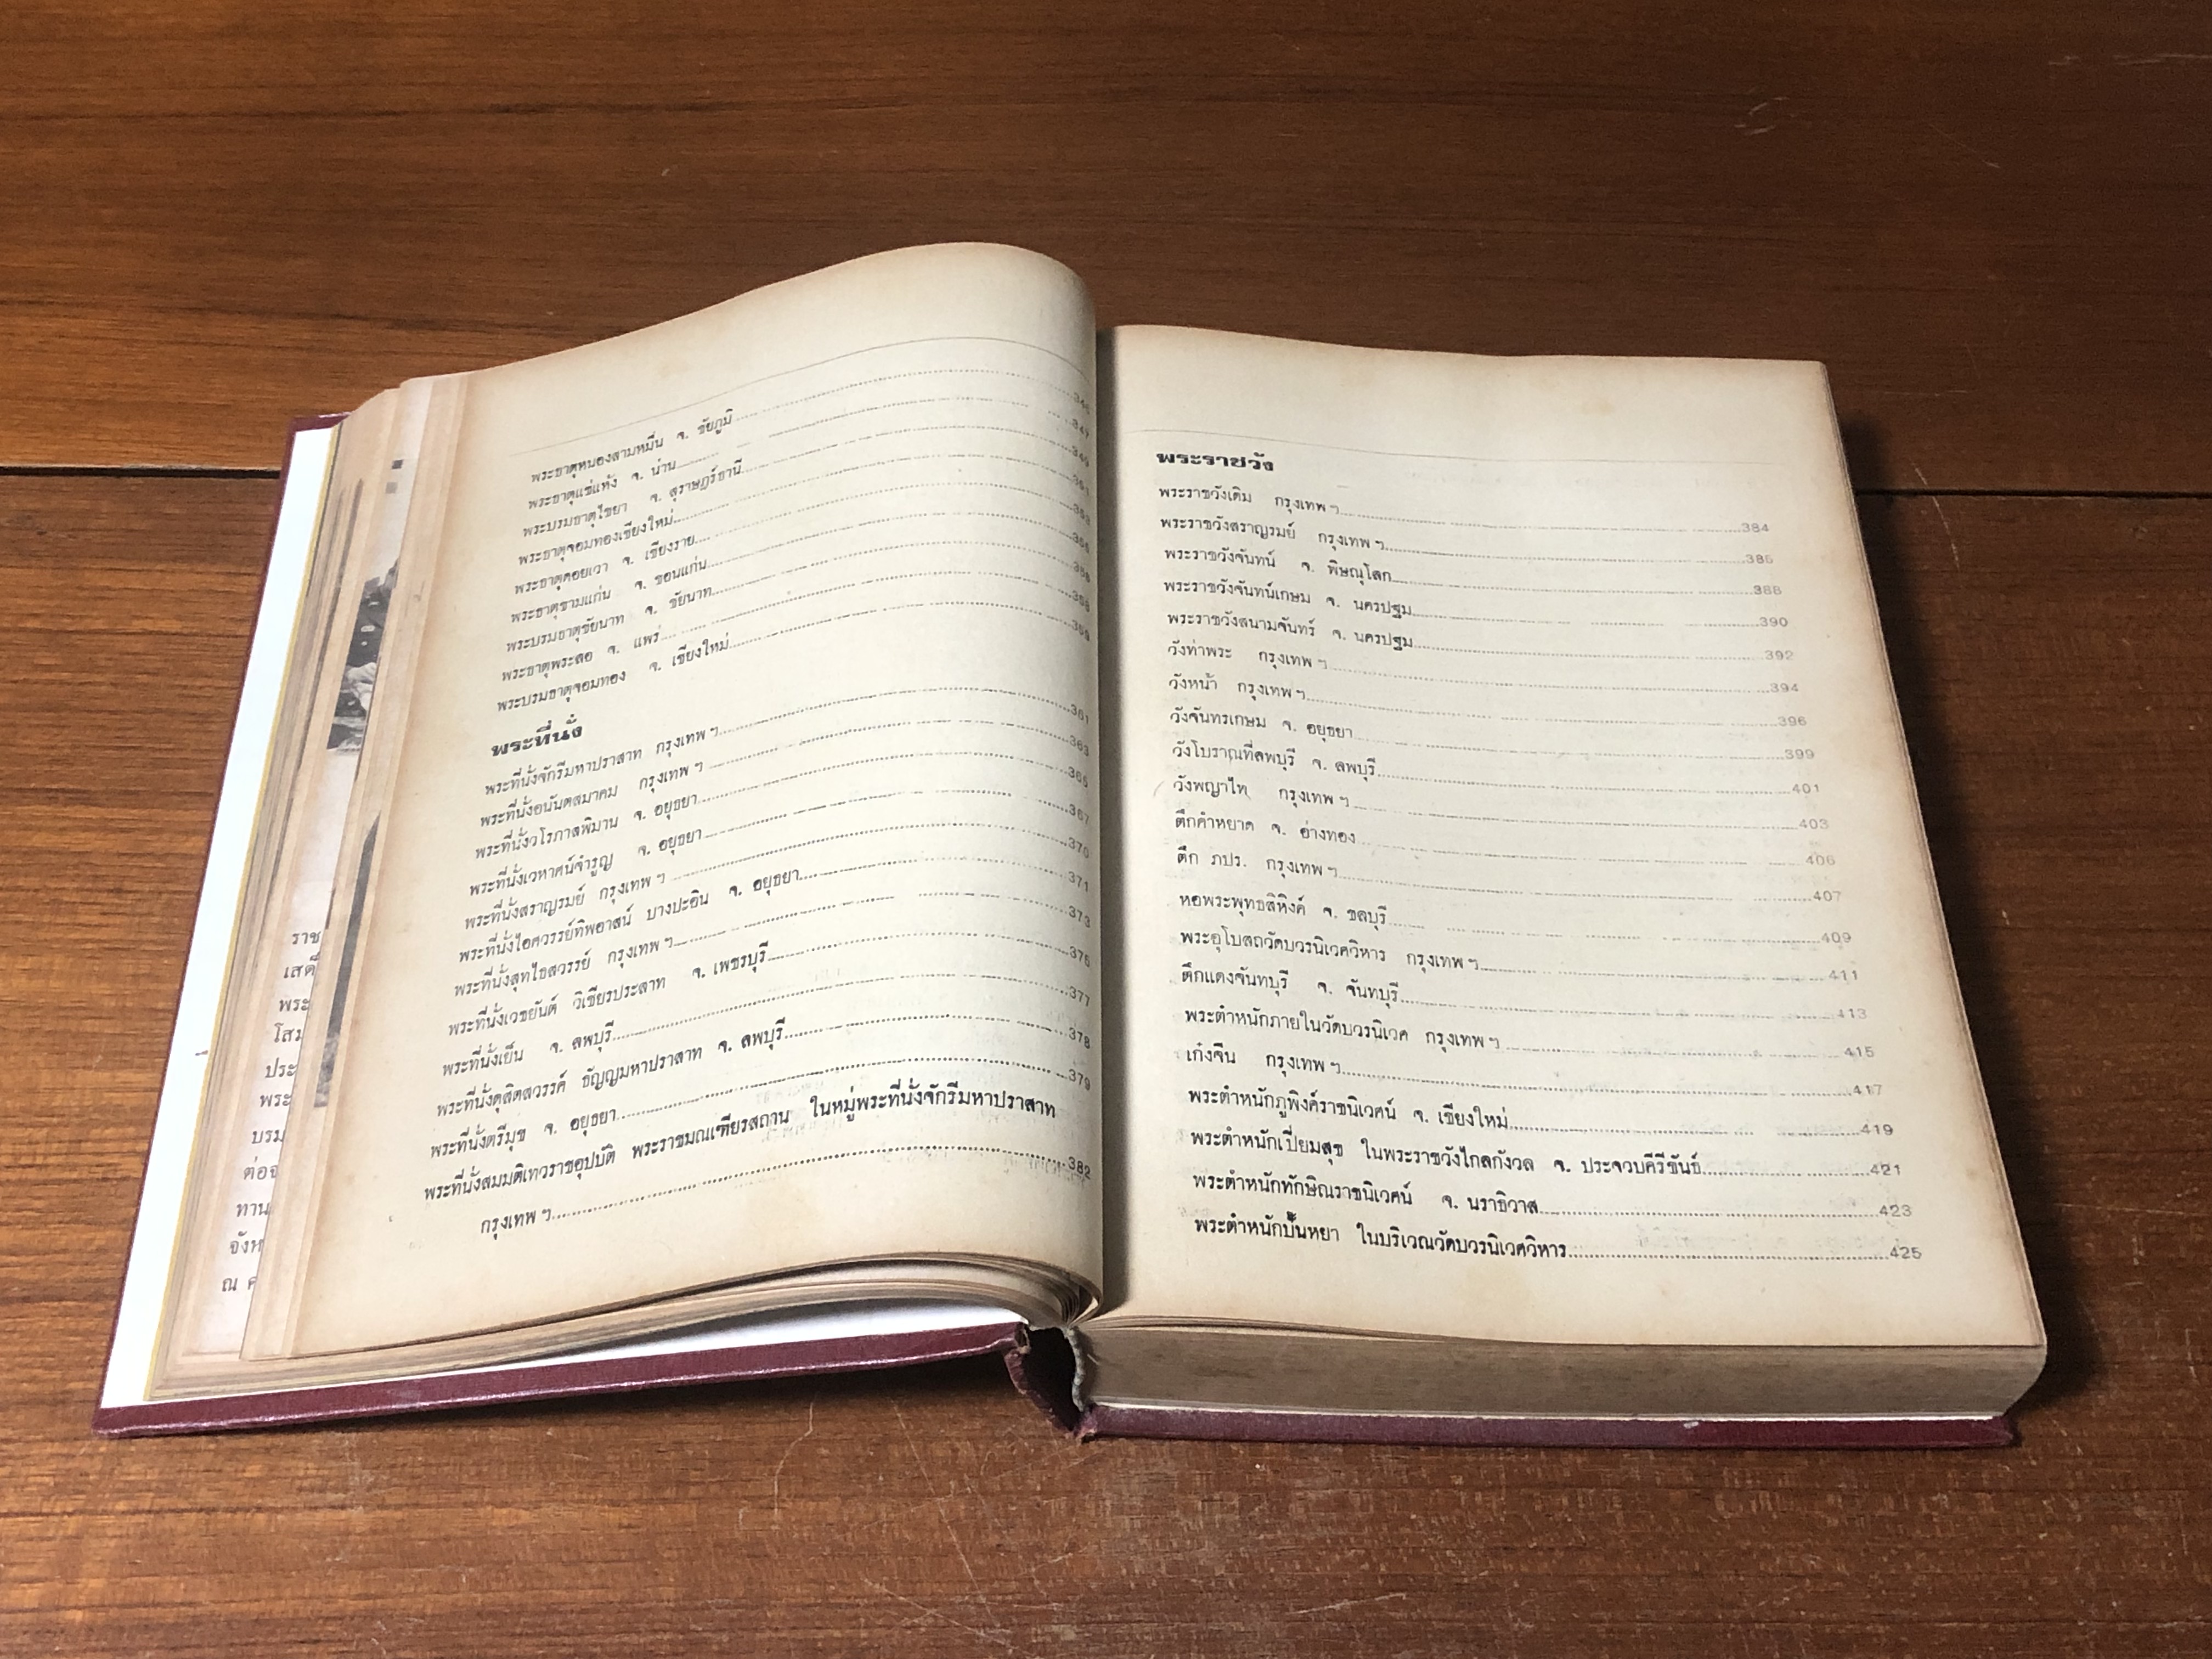 ราช
เสด็
พระ
โสม
ประ
พระ
บรม
ต่อจ
ทาน
จังห
ณ ค
พระธาตุหนองสามหมื่น จ. ชัยภูมิ
พระธาตุแช่แห้ง จ. น่าน 347
พระบรมธาตุไชยา จ. สุราษฎร์ธานี 349
พระธาตุจอมทองเชียงใหม่ 351
พระธาตุดอยเวา จ. เชียงราย 353
พระธาตุขามแก่น จ. ขอนแก่น
พระบรมธาตุชัยนาท จ. ชัยนาท
พระธาตุพระลอ จ. แพร่ 358
พระบรมธาตุจอมทอง จ. เชียงใหม่ 359
พระที่นั่ง
พระที่นั่งจักรีมหาปราสาท กรุงเทพฯ 361
พระที่นั่งอนันตสมาคม กรุงเทพฯ 363
พระที่นั่งวโรภาสพิมาน จ. อยุธยา 365
พระที่นั่งเวหาศน์จำรูญ จ. อยุธยา 367
พระที่นั่งสราญรมย์ กรุงเทพฯ 370
พระที่นั่งไอศวรรย์ทิพอาสน์ บางปะอิน จ. อยุธยา 371
พระที่นั่งสุทไธสวรรย์ กรุงเทพฯ 373
พระที่นั่งเวชยันต์ วิเชียรประสาท จ. เพชรบุรี 375
พระที่นั่งเย็น จ. ลพบุรี 377
พระที่นั่งดุสิตสวรรค์ ธัญญมหาปราสาท จ. ลพบุรี 378
พระที่นั่งตรีมุข จ. อยุธยา 379
พระที่นั่งสมมติเทวราชอุปบัติ พระราชมณเฑียรสถาน ในหมู่พระที่นั่งจักรีมหาปราสาท
กรุงเทพฯ 382
พระราชวัง
พระราชวังเดิม กรุงเทพฯ 384
พระราชวังสราญรมย์ กรุงเทพฯ 385
พระราชวังจันทน์ จ. พิษณุโลก 388
พระราชวังจันทน์เกษม จ. นครปฐม 390
พระราชวังสนามจันทร์ จ. นครปฐม 392
วังท่าพระ กรุงเทพฯ 394
วังหน้า กรุงเทพฯ 396
วังจันทรเกษม จ. อยุธยา 399
วังโบราณที่ลพบุรี จ. ลพบุรี 401
วังพญาไท กรุงเทพฯ 403
ตึกคำหยาด จ. อ่างทอง 406
ตึก ภปร. กรุงเทพฯ 407
หอพระพุทธสิหิงค์ จ. ชลบุรี 409
พระอุโบสถวัดบวรนิเวศวิหาร กรุงเทพฯ 411
ตึกแดงจันทบุรี จ. จันทบุรี 413
พระตำหนักภายในวัดบวรนิเวศ กรุงเทพฯ 415
เก๋งจีน กรุงเทพฯ 417
พระตำหนักภูพิงค์ราชนิเวศน์ จ. เชียงใหม่ 419
พระตำหนักเปี่ยมสุข ในพระราชวังไกลกังวล จ. ประจวบคีรีขันธ์ 421
พระตำหนักทักษิณราชนิเวศน์ จ. นราธิวาส 423
พระตำหนักปั้นหยา ในบริเวณวัดบวรนิเวศวิหาร 425